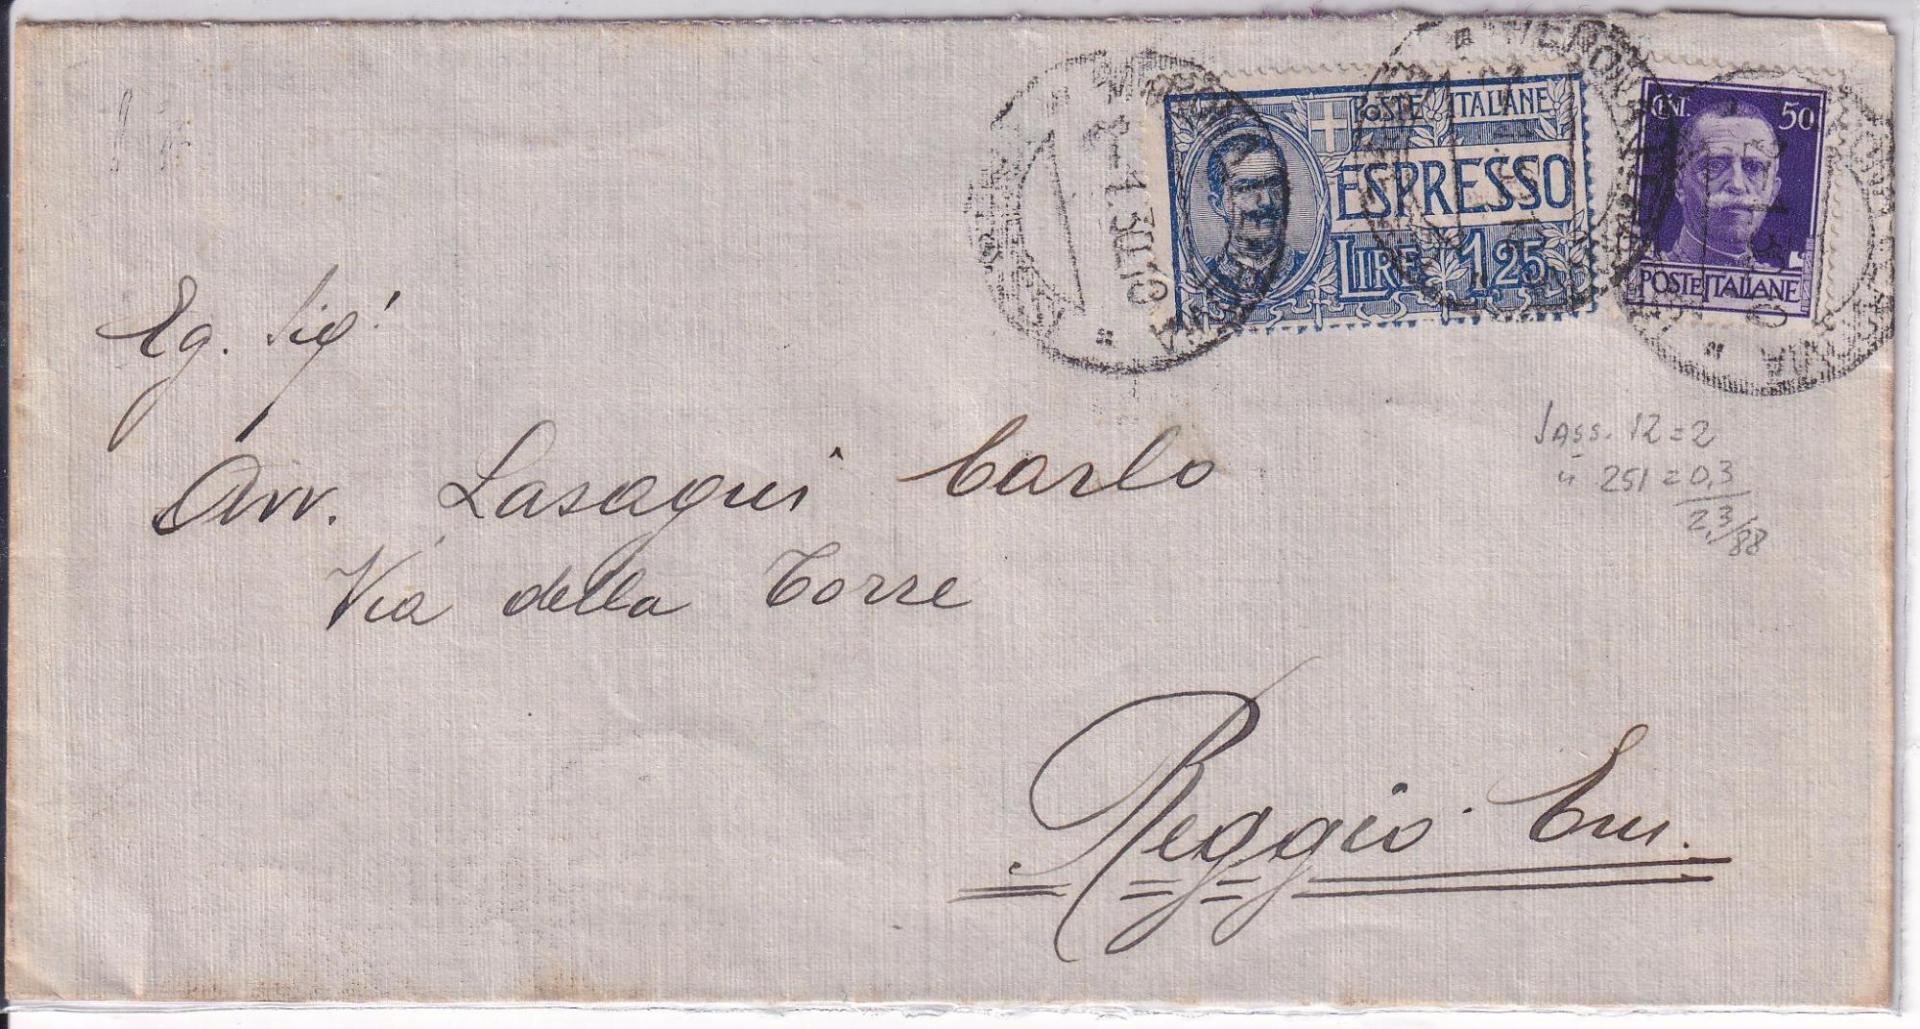 POSTE ITALIANE
ESPRESSO
LIRE 1,25
CENT. 50
POSTE ITALIANE
Eg. Sig.
Avv. Lasagni Carlo
Via della Torre
Reggio Em.
SASS. 12 = 2
" 251 = 0,3
2,3/88